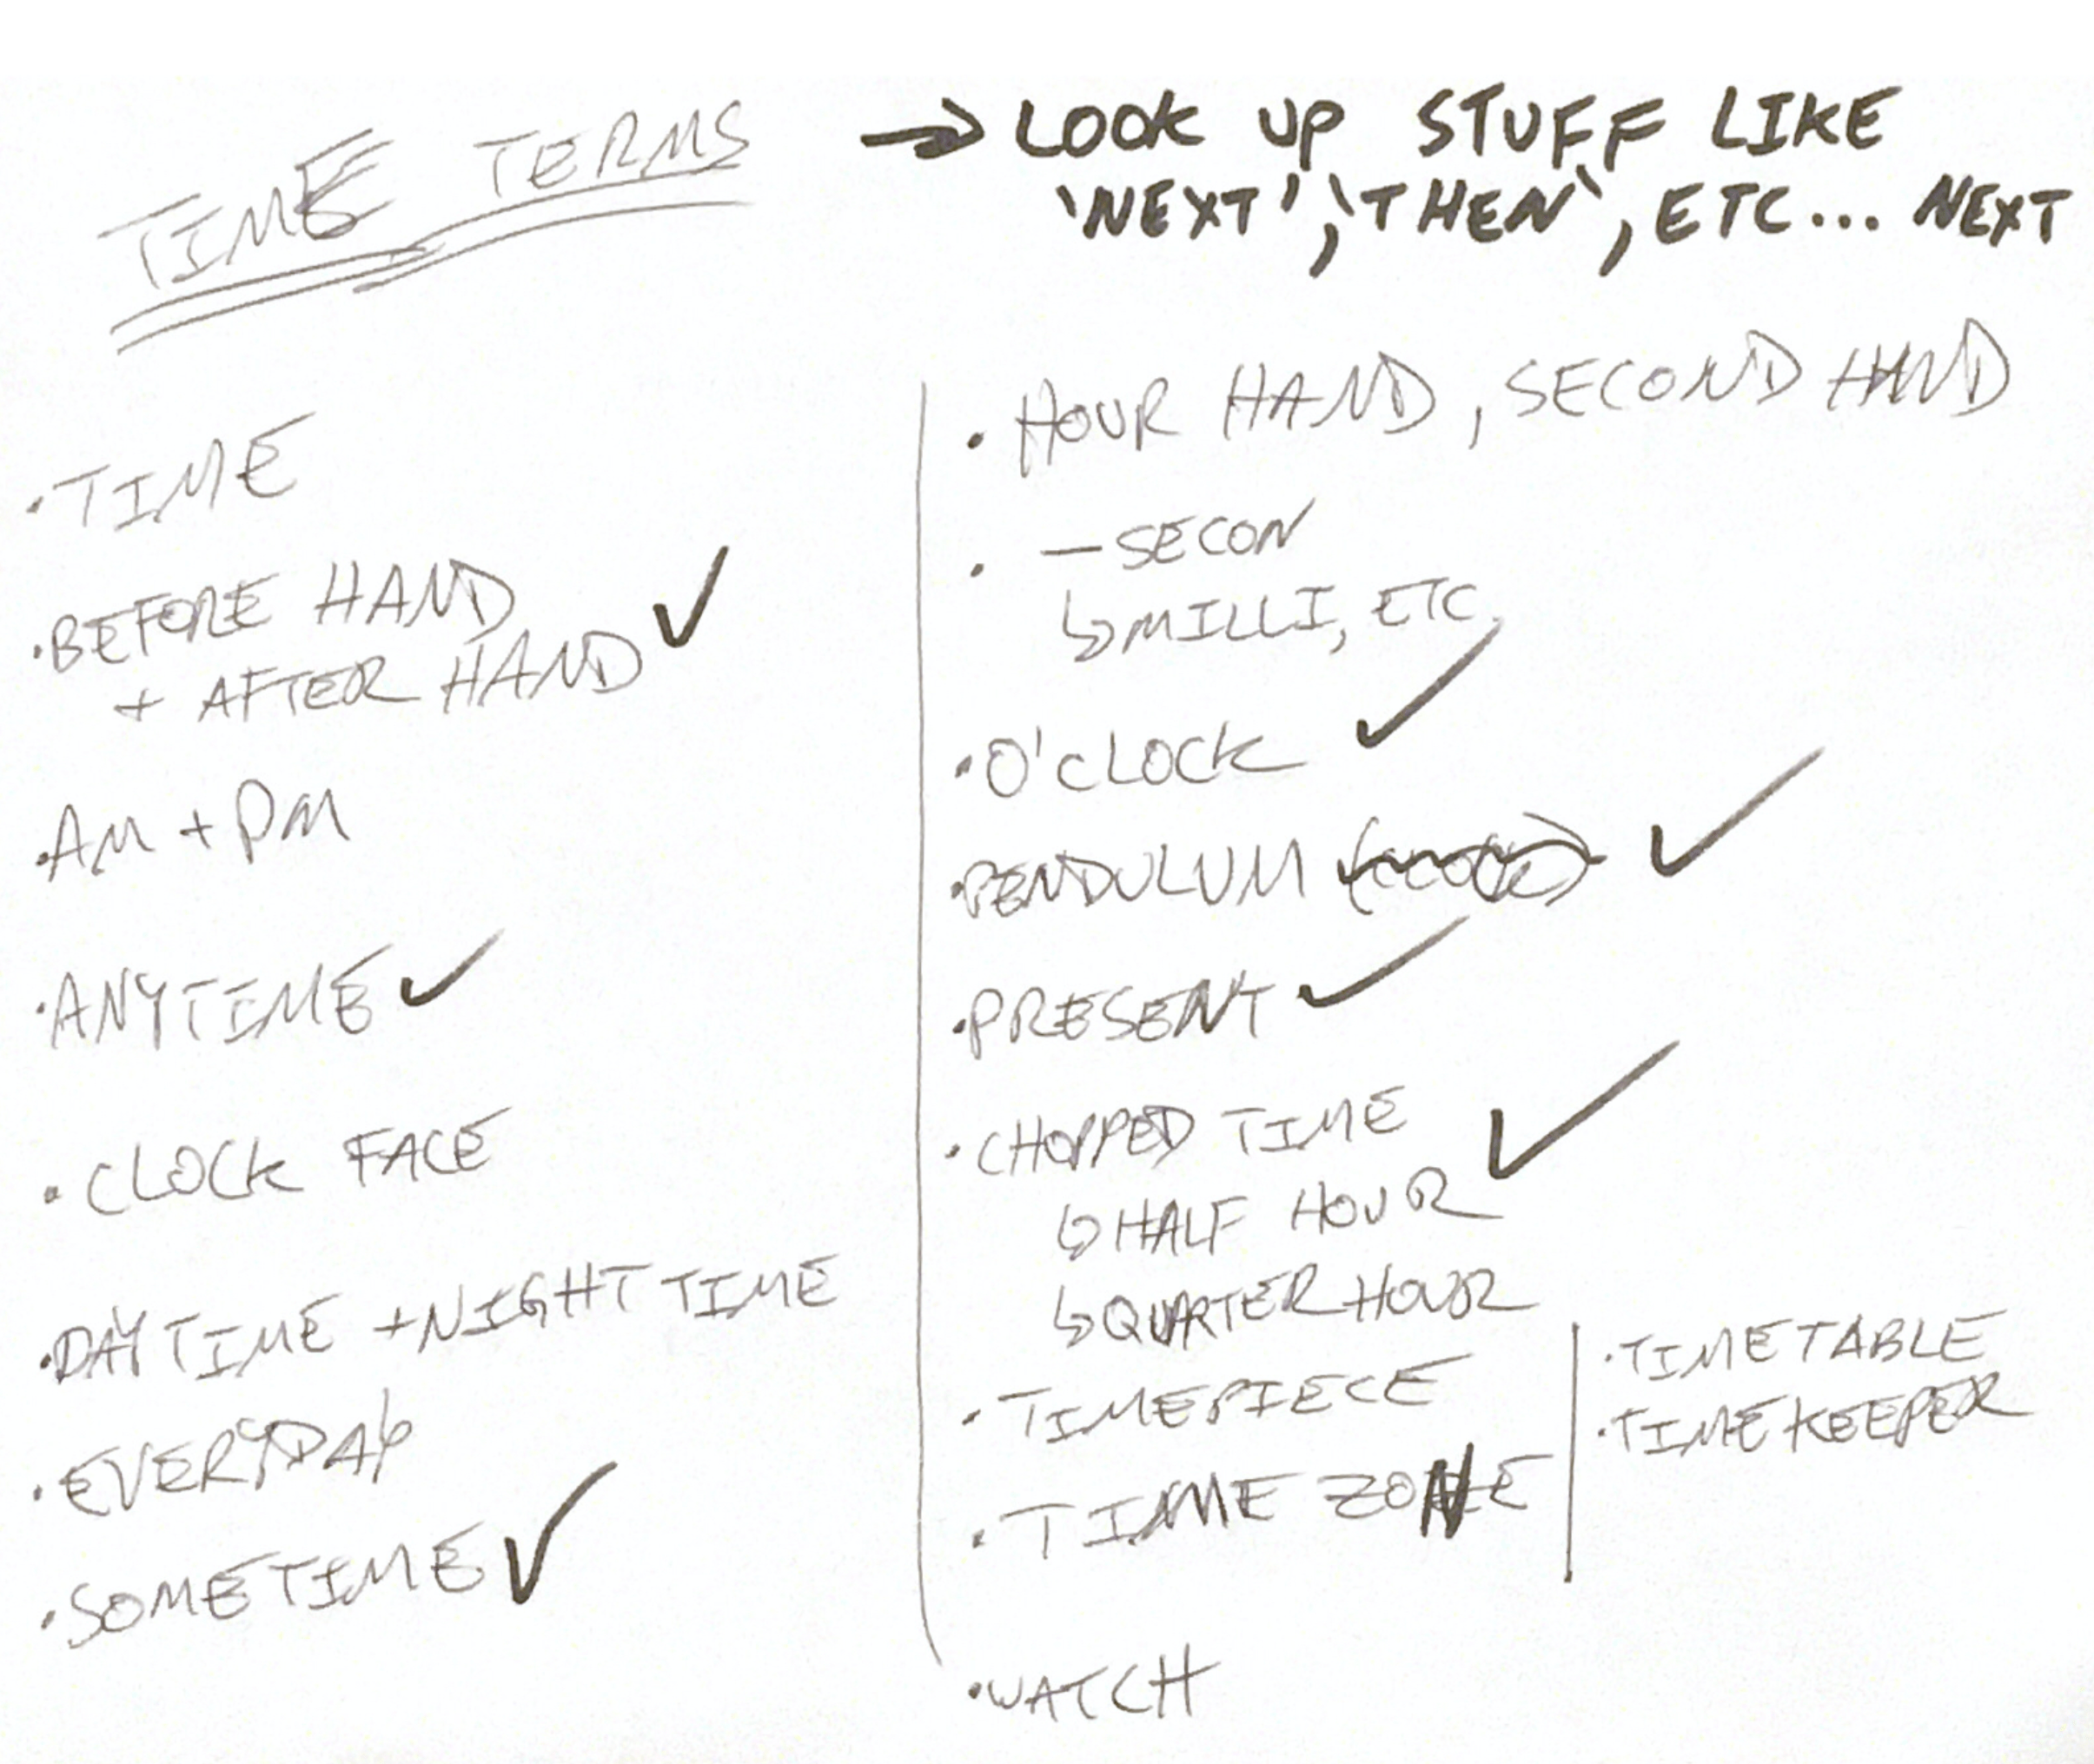 TIME TERMS
→ LOOK UP STUFF LIKE
'NEXT', 'THEN', ETC... NEXT
· TIME
· BEFORE HAND
+ AFTER HAND ✓
· AM + PM
· ANYTIME ✓
· CLOCK FACE
· DAYTIME + NIGHT TIME
· EVERYDAY
· SOMETIME ✓
· HOUR HAND, SECOND HAND
· — SECON
↳ MILLI, ETC.
· O'CLOCK ✓
· PENDULUM ✓
· PRESENT ✓
· CHOPPED TIME ✓
↳ HALF HOUR
↳ QUARTER HOUR
· TIMEPIECE
· TIME ZONE
· TIMETABLE
· TIMEKEEPER
· WATCH